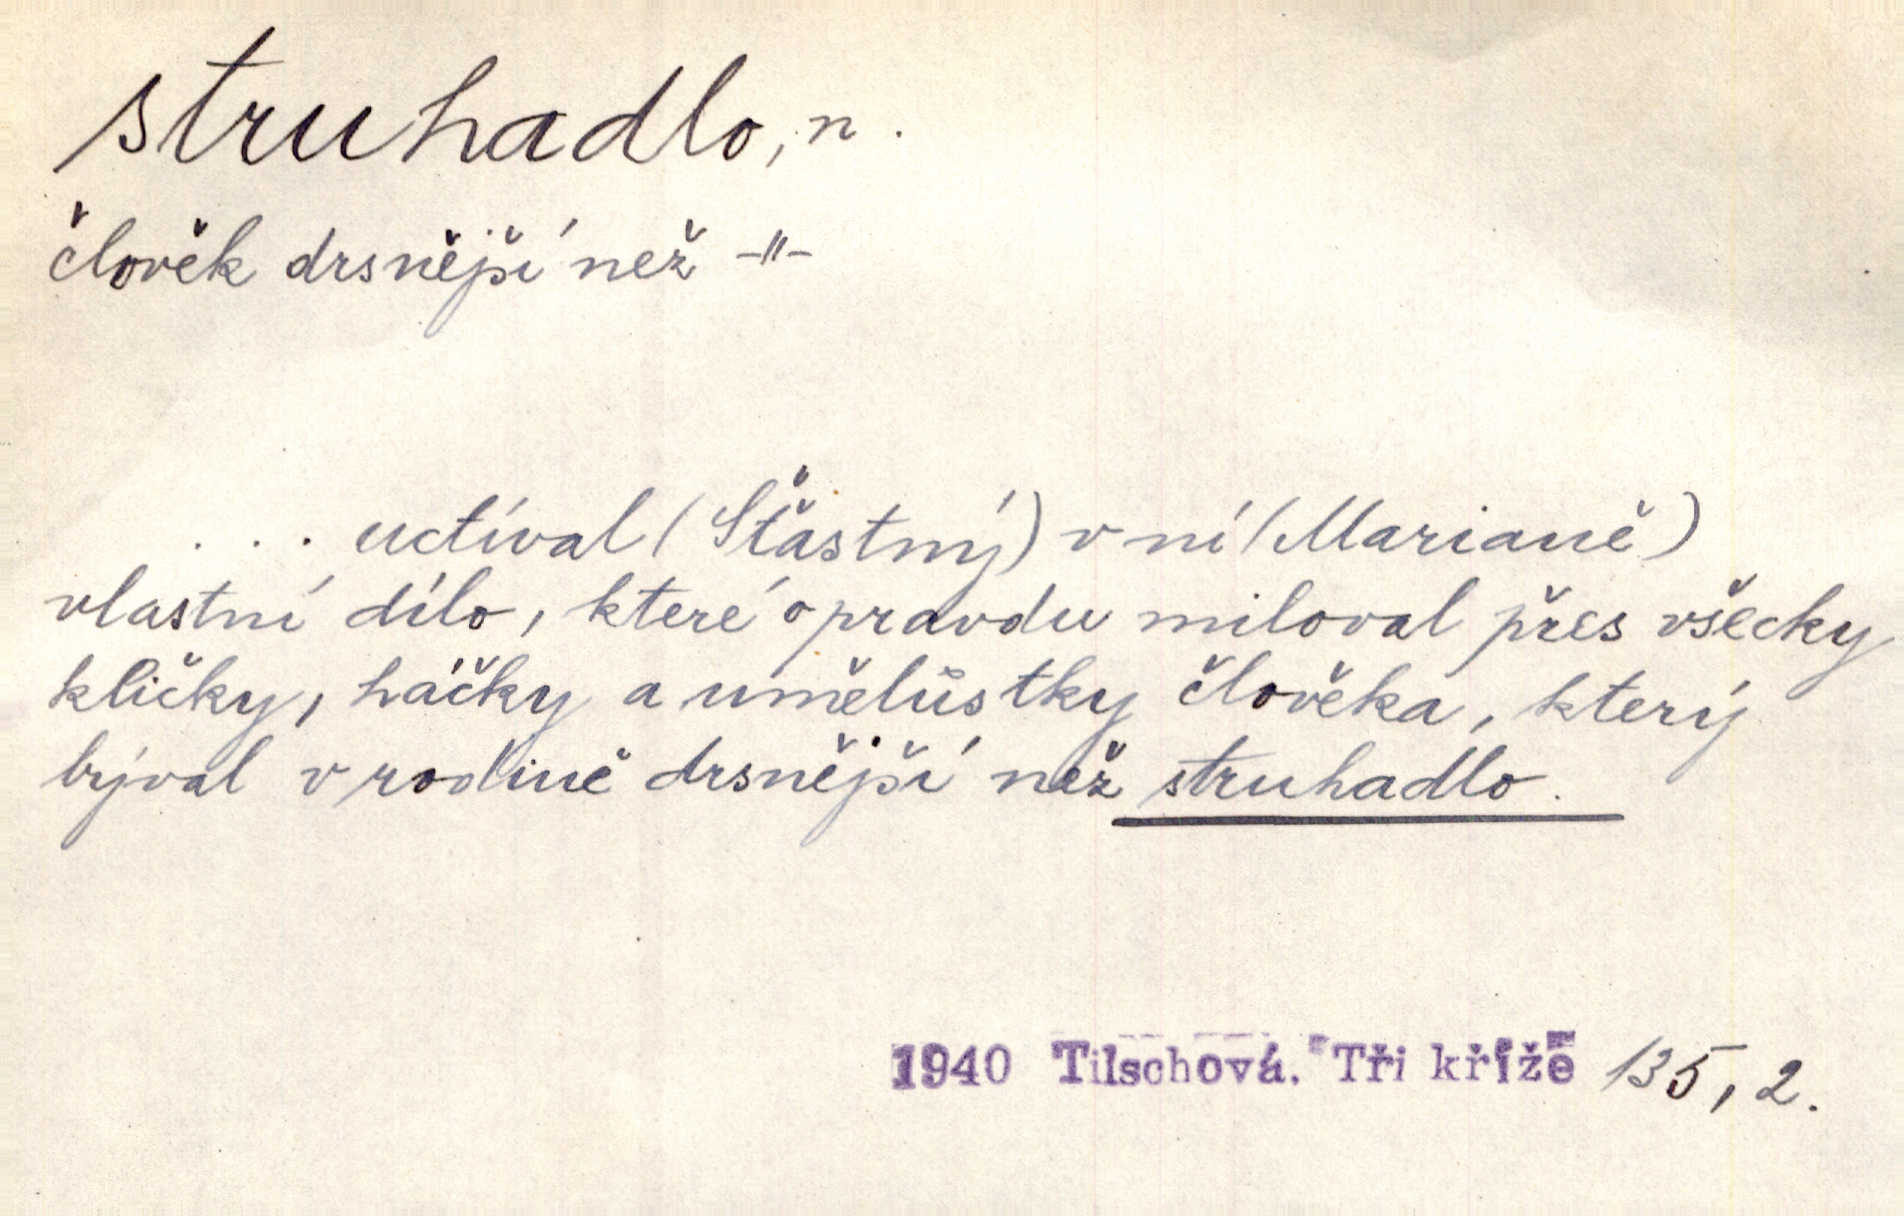 struhadlo, n.
člověk drsnější než -"-
... uctíval (Šťastný) v ní (Marianě)
vlastní dílo, které opravdu miloval přes všecky
kličky, háčky a umělůstky člověka, který
býval v rodině drsnější než struhadlo.
1940 Tilschová. Tři kříže 135, 2.